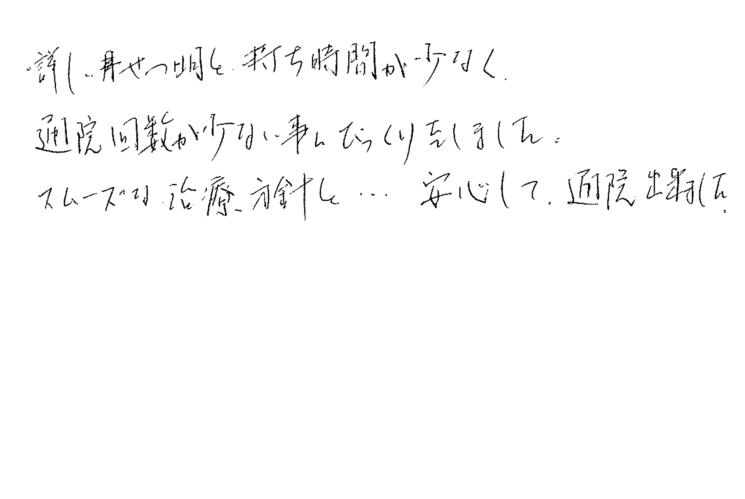 詳しい説明と待ち時間が少なく、
通院回数が少ない事にびっくりをしました。
スムーズな治療方針と… 安心して、通院出来ました。